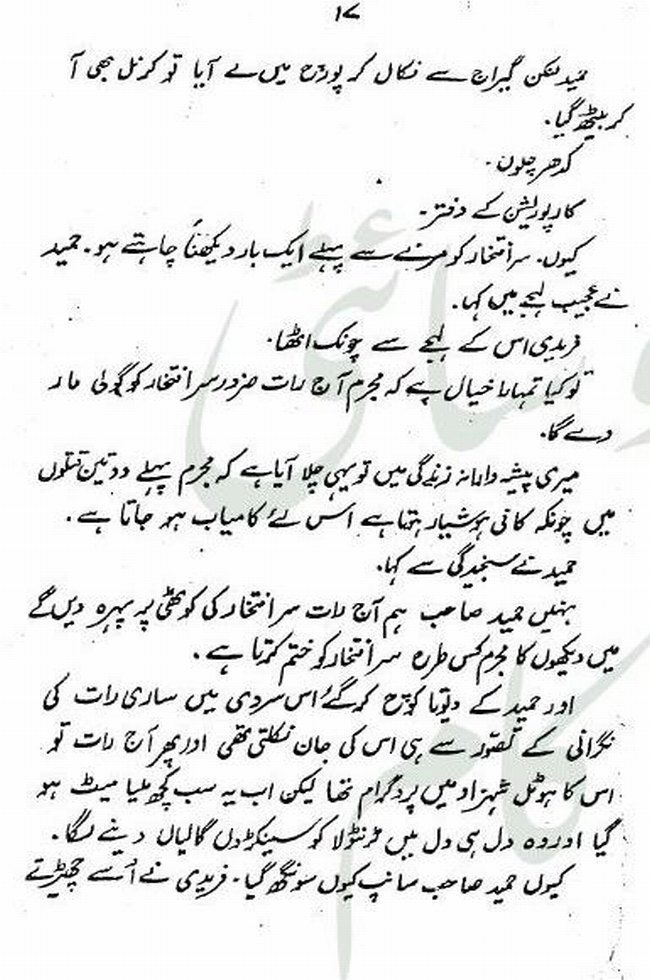 ۱۷
حمید لنکن گیراج سے نکال کر پورچ میں لے آیا تو کرنل بھی آ
کر بیٹھ گیا۔
کدھر چلوں۔
کارپوریشن کے دفتر۔
کیوں۔ سر افتخار کو مرنے سے پہلے ایک بار دیکھنا چاہتے ہو۔ حمید
نے عجیب لہجے میں کہا۔
فریدی اس کے لہجے سے چونک اٹھا۔
تو کیا تمہارا خیال ہے کہ مجرم آج رات ضرور سر افتخار کو گولی مار
دے گا۔
میری پیشہ ورانہ زندگی میں تو یہی چلا آیا ہے کہ مجرم پہلے دو تین قتلوں
میں چونکہ کافی ہوشیار ہوتا ہے اس لئے کامیاب ہو جاتا ہے۔
حمید نے سنجیدگی سے کہا۔
نہیں حمید صاحب ہم آج رات سر افتخار کی کوٹھی پہ پہرہ دیں گے
میں دیکھوں گا مجرم کس طرح سر افتخار کو ختم کرتا ہے۔
اور حمید کے دیوتا کوچ کر گئے اس سردی میں ساری رات کی
نگرانی کے تصور سے ہی اس کی جان نکلتی تھی اور پھر آج رات تو
اس کا ہوٹل شہزاد میں پروگرام تھا لیکن اب یہ سب کچھ ملیا میٹ ہو
گیا اور وہ دل ہی دل میں ٹرنٹولا کو سینکڑوں گالیاں دینے لگا۔
کیوں حمید صاحب سانپ کیوں سونگھ گیا۔ فریدی نے اُسے چھیڑتے